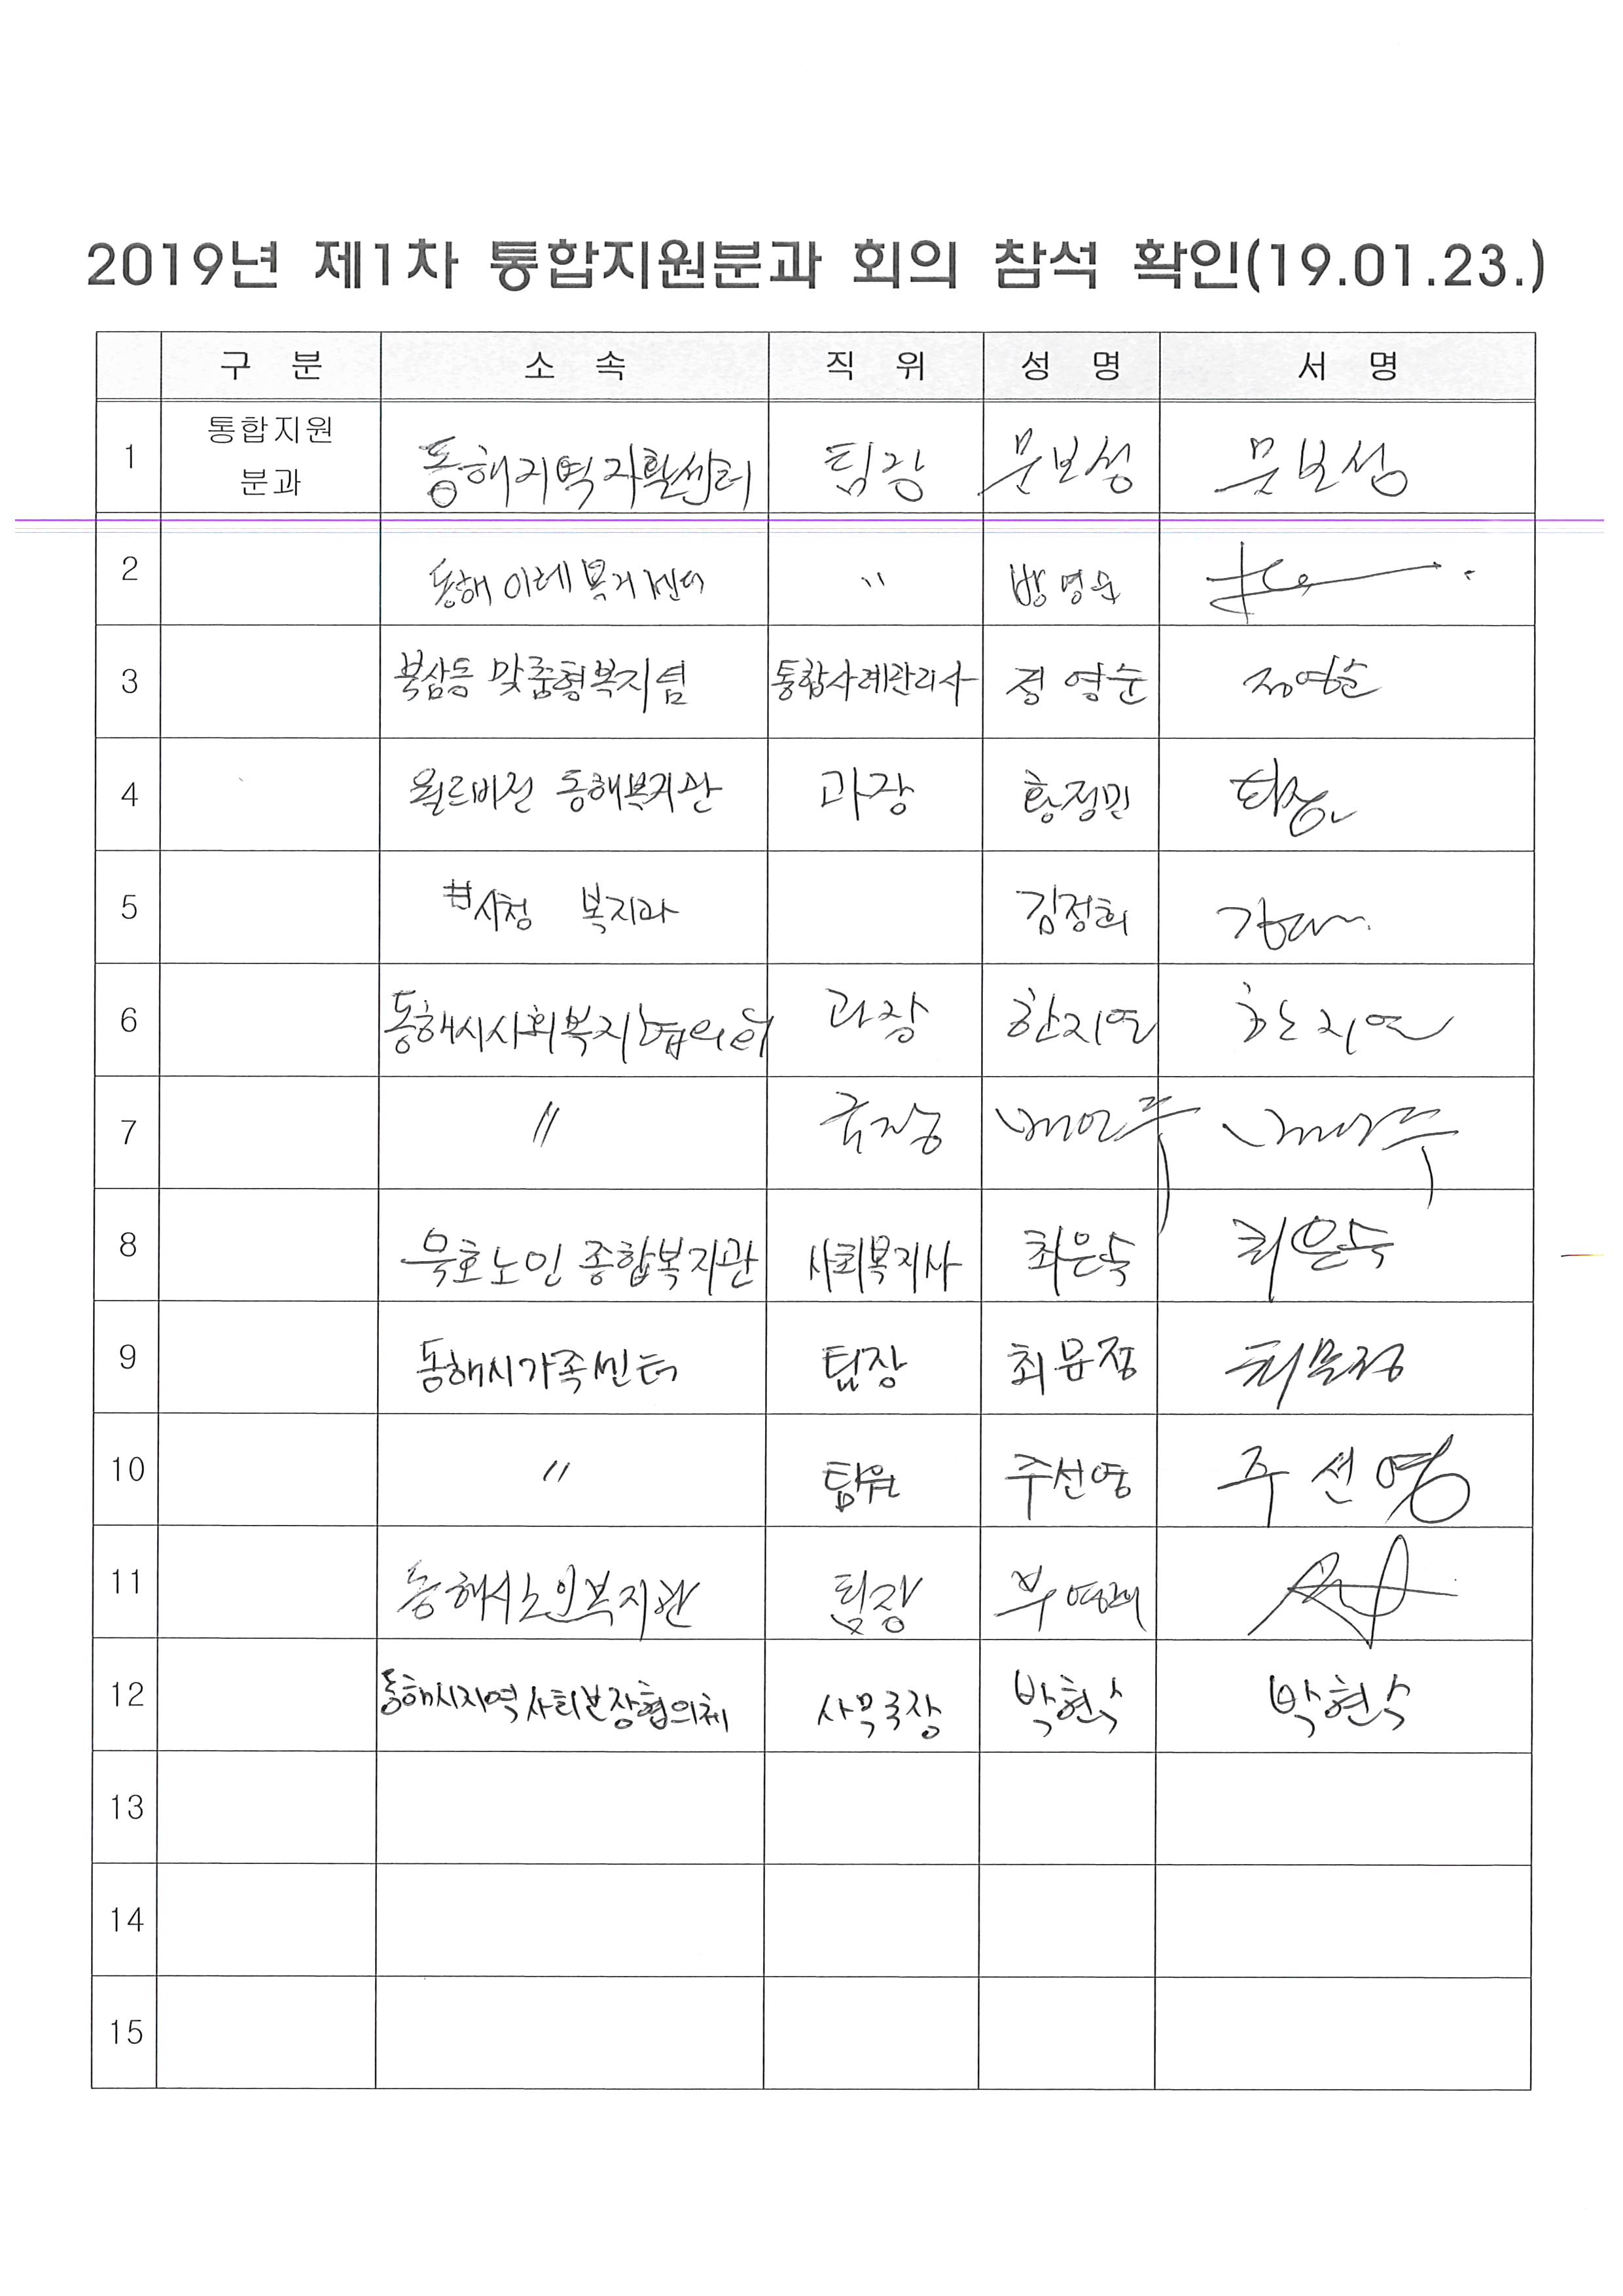 2019년 제1차 통합지원분과 회의 참석 확인(19.01.23.)
구 분 소 속 직 위 성 명 서 명
1 통합지원 분과 동해지역자활센터 팀장 문보성 문보성
2 동해이레복지센터 〃 방영순
3 북삼동 맞춤형복지팀 통합사례관리사 정영순 정영순
4 월드비전 동해복지관 과장 황정민
5 시청 복지과 김정희
6 동해시사회복지협의회 과장 한지연 한지연
7 〃 국장
8 묵호노인종합복지관 사회복지사 최은숙 최은숙
9 동해시가족센터 팀장 최문정 최문정
10 〃 팀원 주선영 주선영
11 동해시노인복지관 팀장
12 동해시지역사회보장협의체 사무국장 박현수 박현수
13
14
15